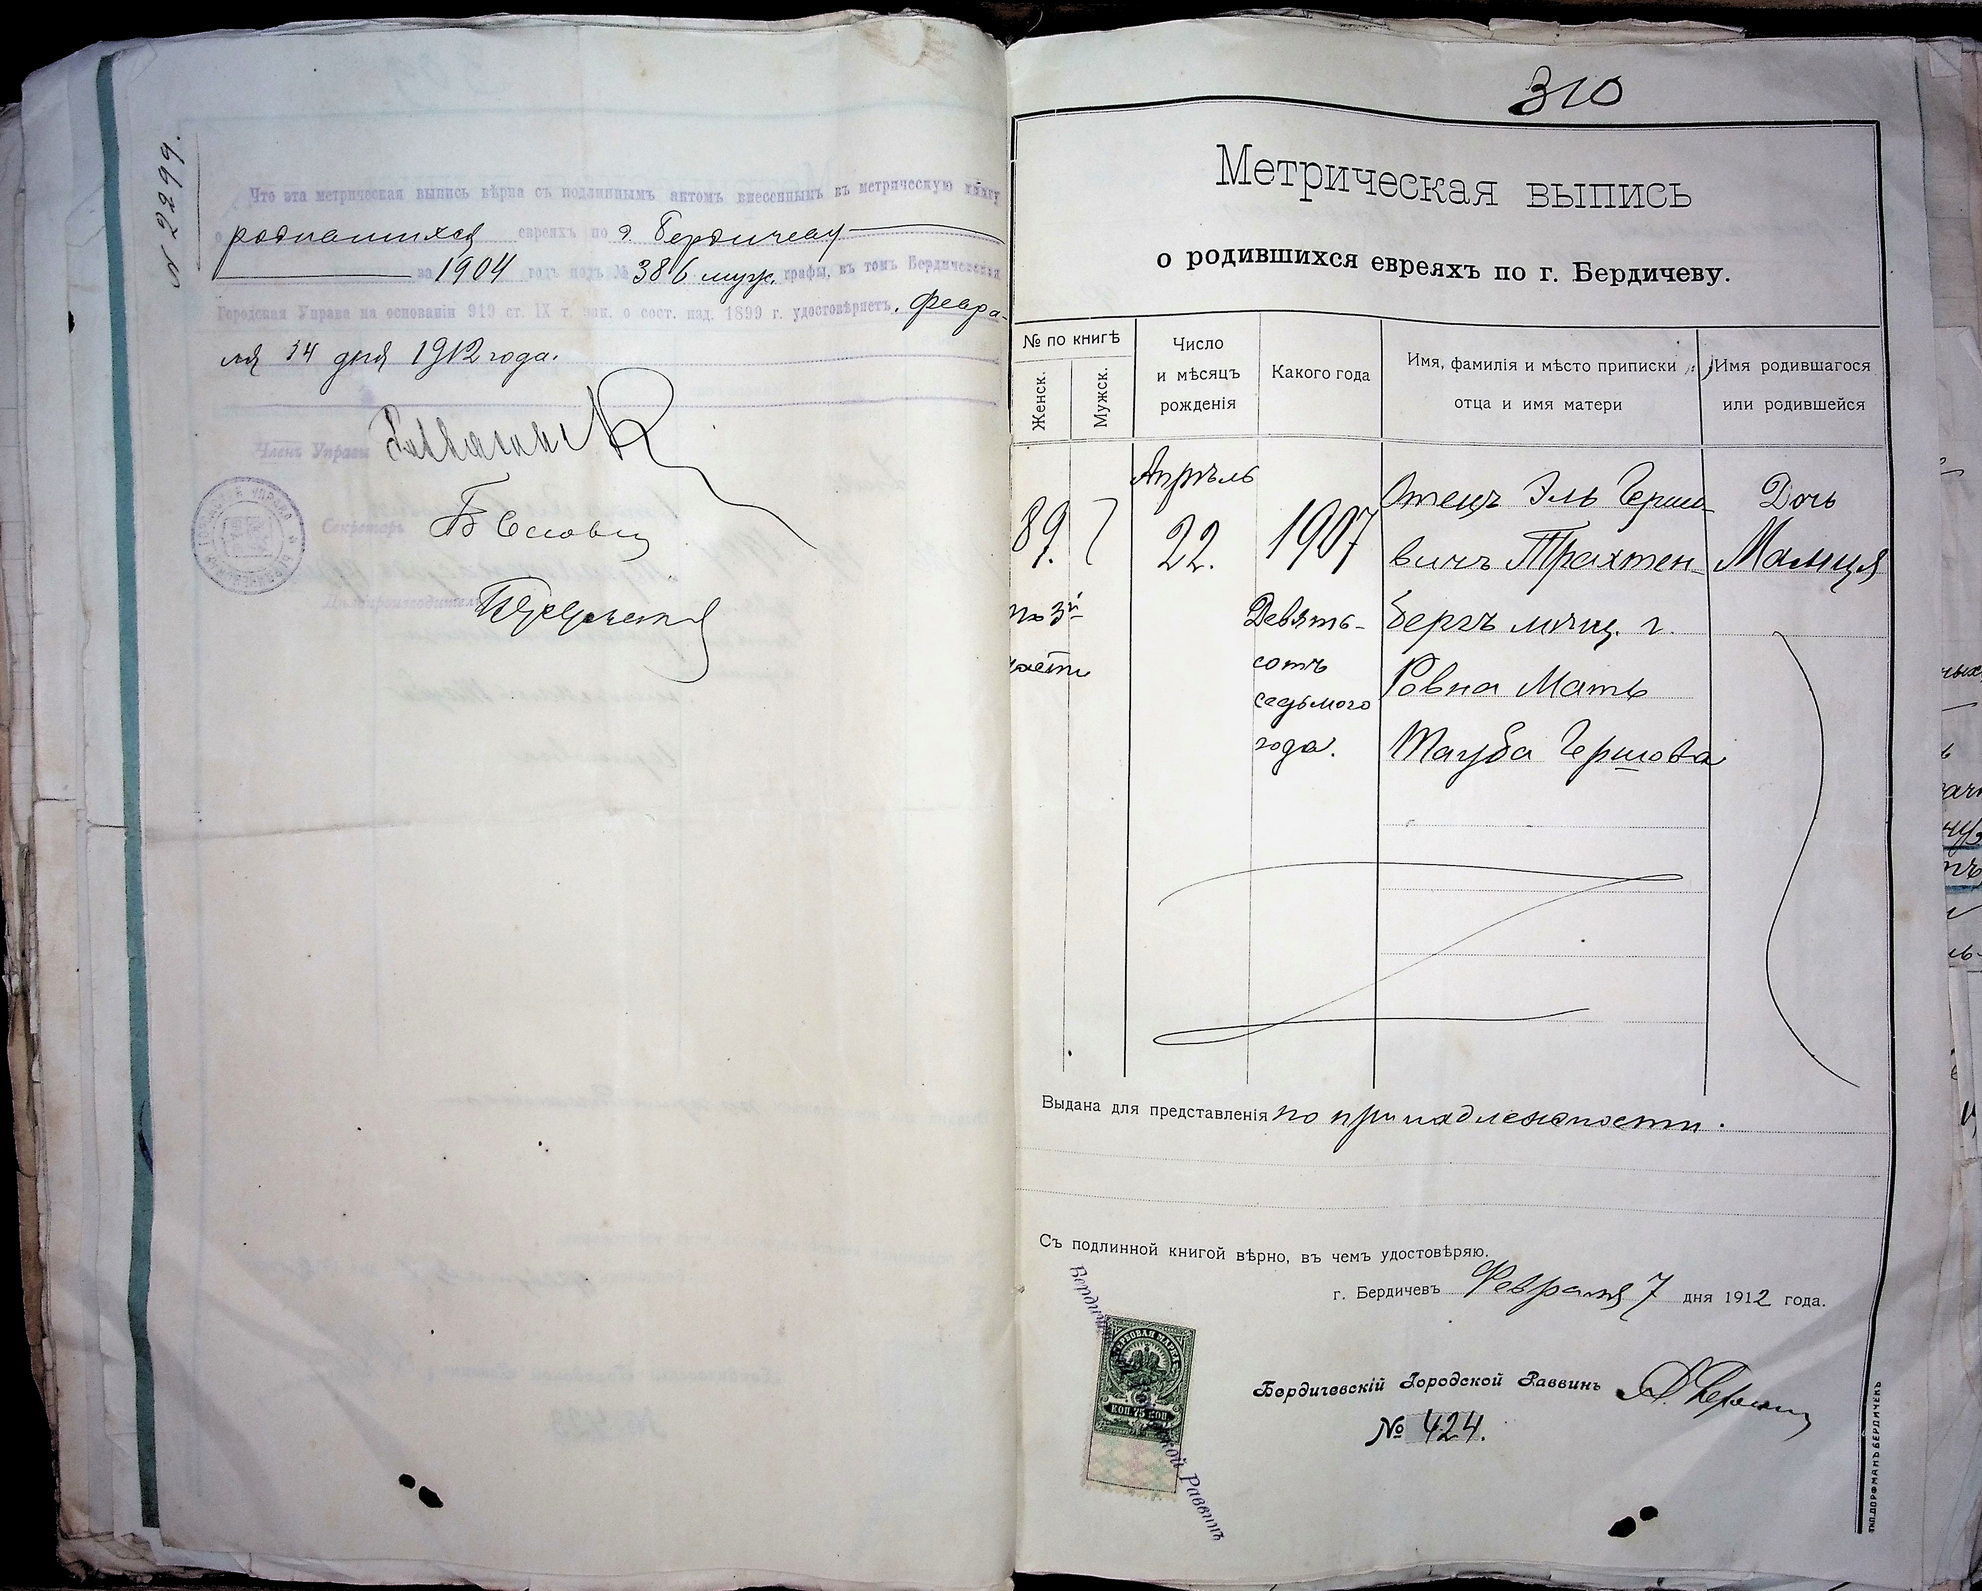 № 2299.
Что эта метрическая выпись вѣрна съ подлиннымъ актомъ внесеннымъ въ метрическую книгу
о родившихся евреяхъ по г. Бердичеву
за 1904 годъ подъ № 386 муж. графы, въ томъ Бердичевская
Городская Управа на основаніи 919 ст. IX т. зак. о сост. изд. 1899 г. удостовѣряетъ. Февра-
ля 14 дня 1912 года.
Членъ Управы
Секретарь
Дѣлопроизводитель
310
Метрическая выпись
о родившихся евреяхъ по г. Бердичеву.
№ по книгѣ
Женск.
Мужск.
Число
и мѣсяцъ
рожденія
Какого года
Имя, фамилія и мѣсто приписки
отца и имя матери
Имя родившагося
или родившейся
89.
по 3й
части
Апрѣль
22.
1907
Девять-
сотъ
седьмого
года.
Отецъ Эль Гершо-
вичъ Трахтен-
бергъ мѣщ. г.
Ровна Мать
Тауба Гершова
Дочь
Малця
Выдана для представленія по принадлежности.
Съ подлинной книгой вѣрно, въ чемъ удостовѣряю.
г. Бердичевъ Февраля 7 дня 1912 года.
ГЕРБОВАЯ МАРКА
КОП. 75 КОП.
Раввинъ
Бердичевскій Городской Раввинъ
№ 424.
ТИП. ДОРФМАНЪ БЕРДИЧЕВЪ